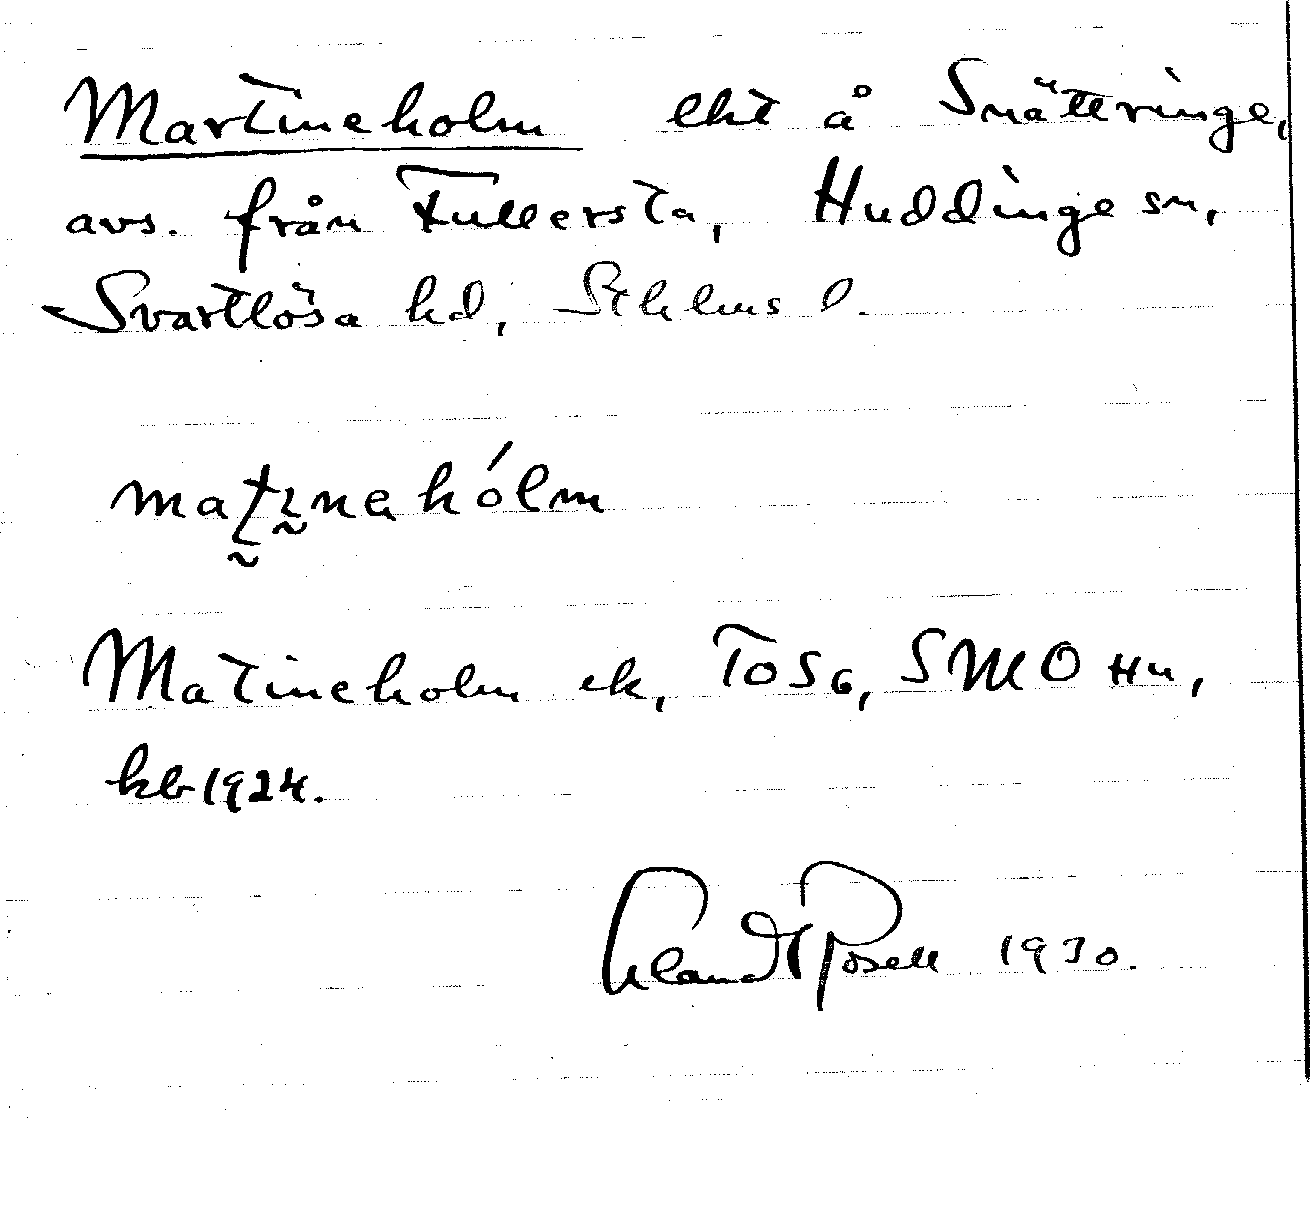 Martineholm lht å Snättringe,
avs. från Fullersta, Huddinge sn,
Svartlösa hd, Sthlms l.
matineholm
Matineholm ek, TOSG, SMO Hu,
kb 1924.
Erland Rosell 1970.